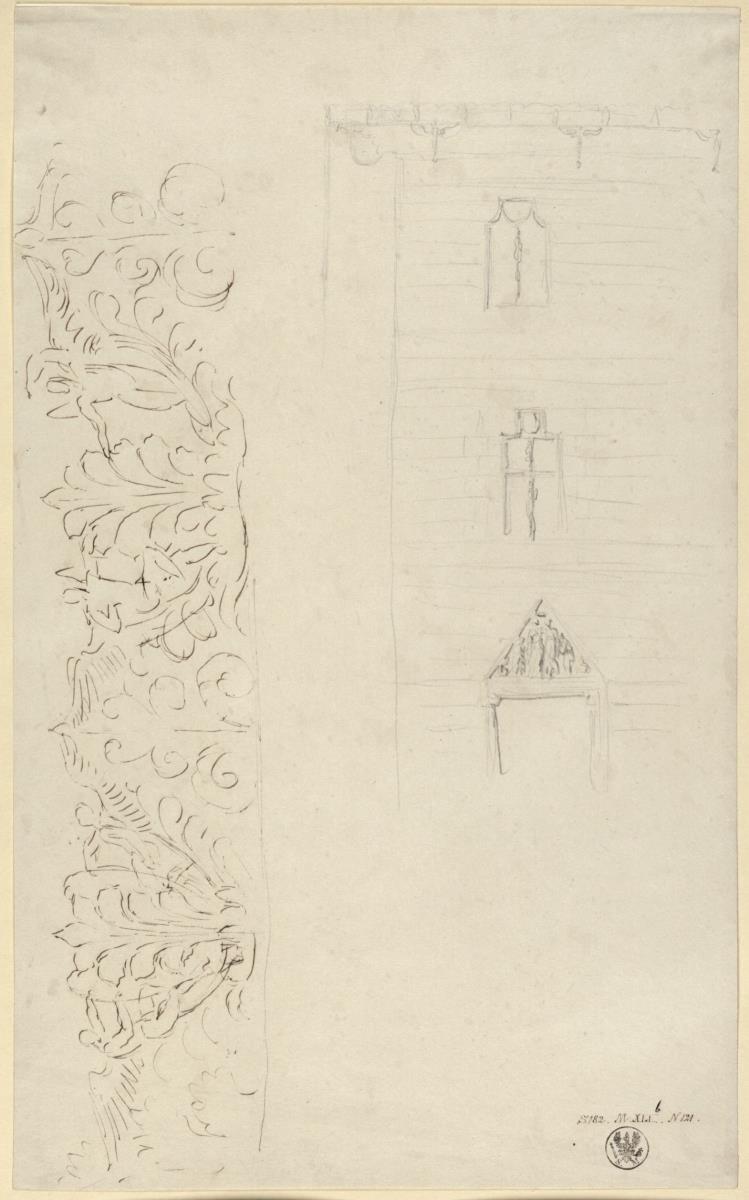 S182. M. XLI. b N 121.